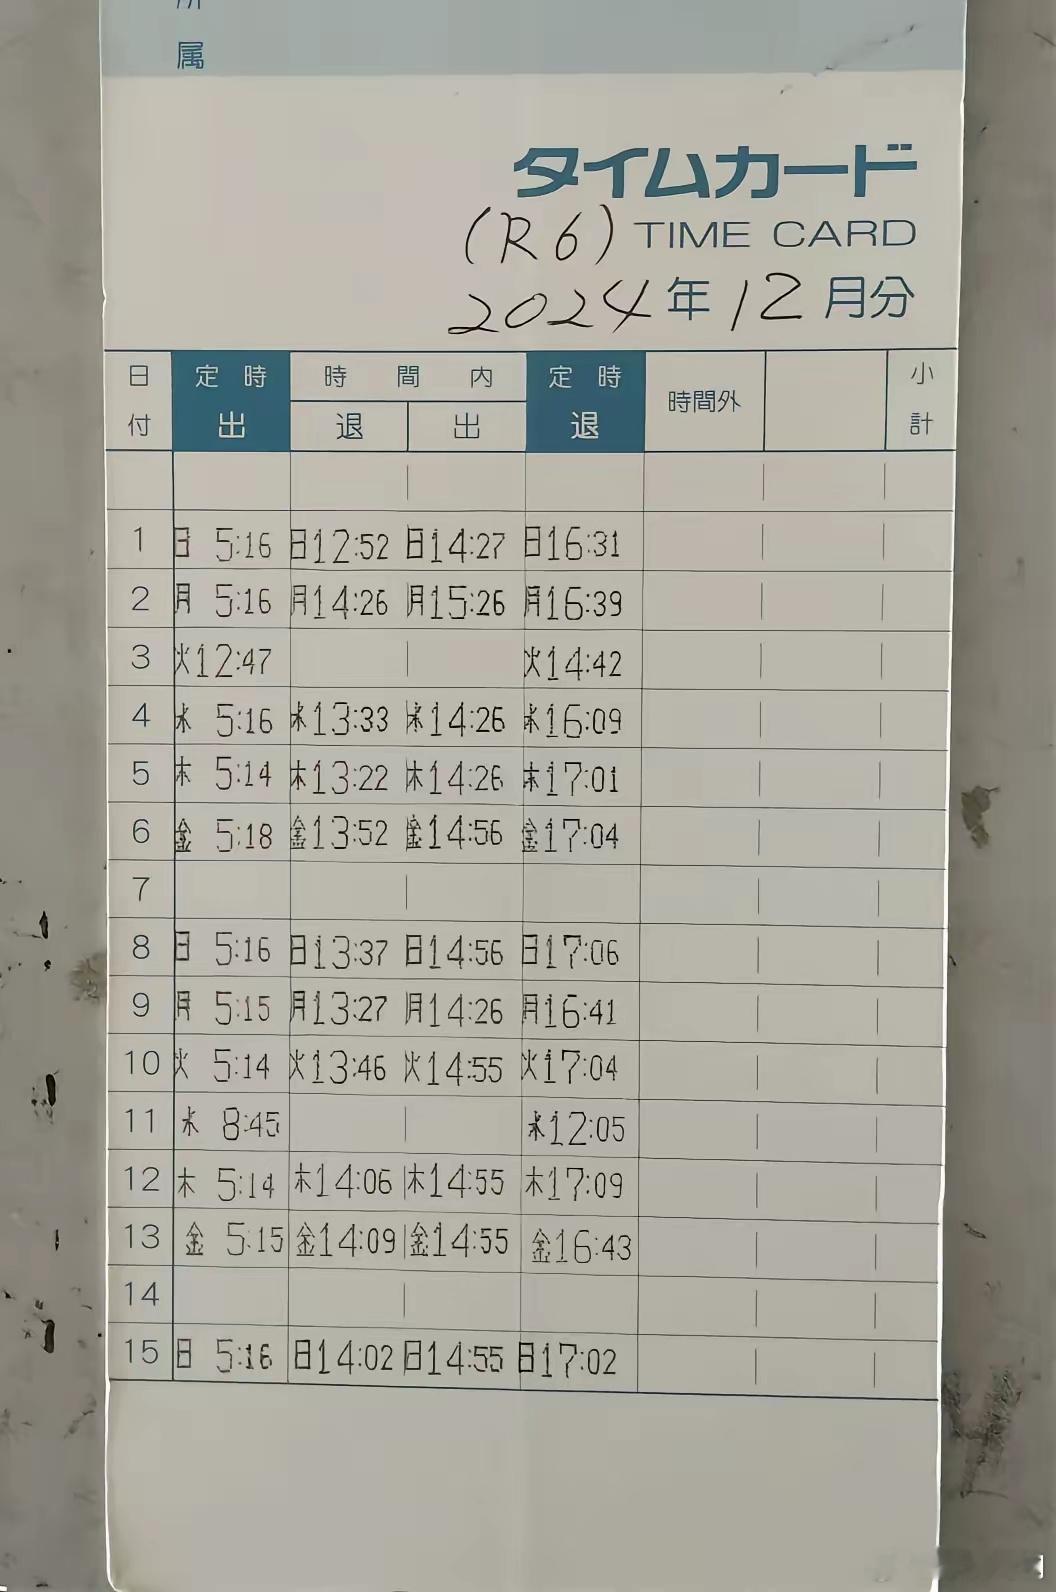 所
属
タイムカード
(R6) TIME CARD
2024年12月分
日付 定時出 時間内 退 出 定時退 時間外 小計
1 日 5:16 日12:52 日14:27 日16:31
2 月 5:16 月14:26 月15:26 月16:39
3 火12:47 火14:42
4 水 5:16 水13:33 水14:26 水16:09
5 木 5:14 木13:22 木14:26 木17:01
6 金 5:18 金13:52 金14:56 金17:04
7
8 日 5:16 日13:37 日14:56 日17:06
9 月 5:15 月13:27 月14:26 月16:41
10 火 5:14 火13:46 火14:55 火17:04
11 水 8:45 水12:05
12 木 5:14 木14:06 木14:55 木17:09
13 金 5:15 金14:09 金14:55 金16:43
14
15 日 5:16 日14:02 日14:55 日17:02